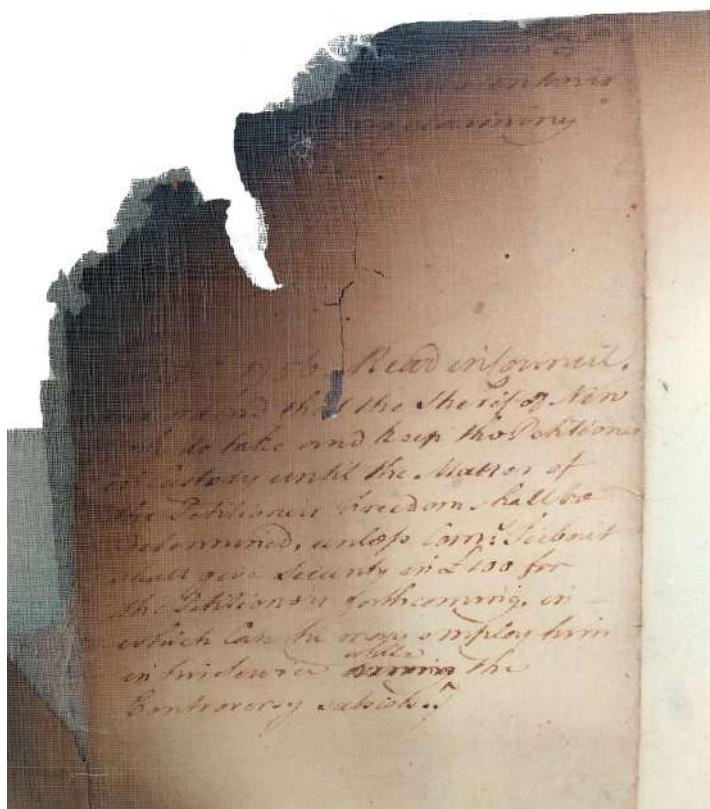 claiming
1756. Read in Council.
and that the Sherif of New
York do take and keep the Petitioner
in Custody until the Matter of
the Petitioners Freedom shall be
determined, unless Corn.s Tiebout
shall give Security in £100 for
the Petitioners forthcoming. in
which Case he may employ him
in his Service while the
Controversy subsists.